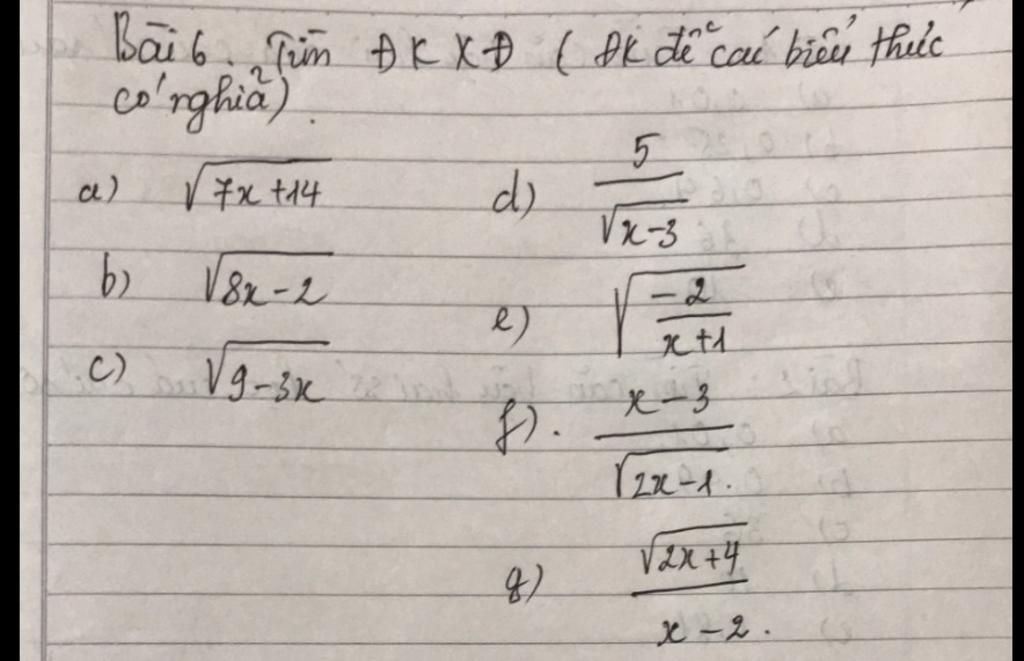 Bài 6. Tìm ĐKXĐ (ĐK để các biểu thức
có nghĩa).
a) √(7x+14)
b) √(8x-2)
c) √(9-3x)
d) 5/√(x-3)
e) √(-2/(x+1))
f). (x-3)/√(2x-1).
g) √(2x+4)/(x-2).